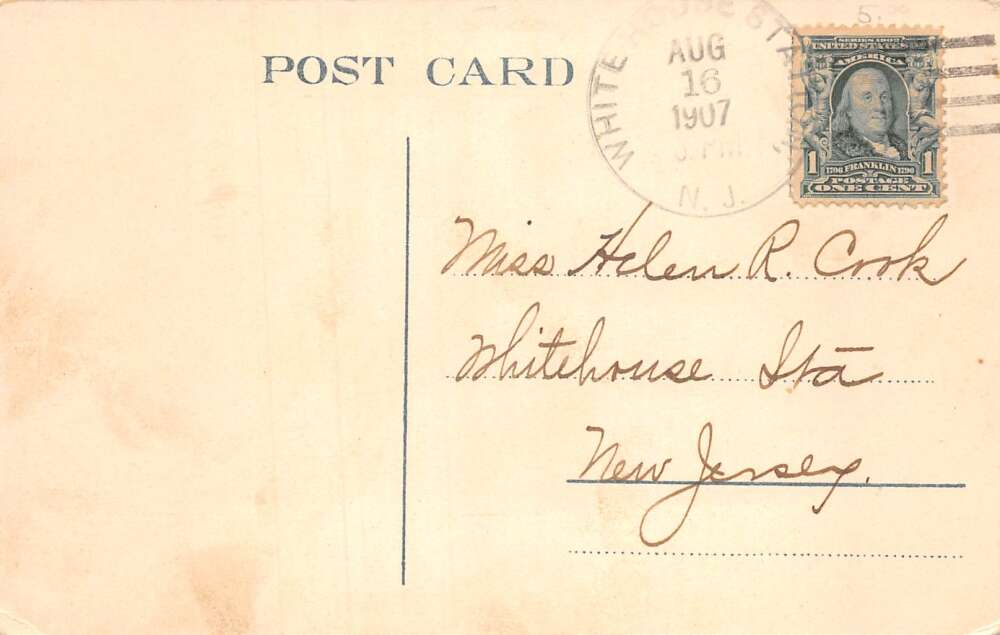 5.
POST CARD
WHITE HOUSE STATION
AUG
16
1907
PM
N. J.
SERIES 1902
UNITED STATES OF
AMERICA
1 1
1706 FRANKLIN 1790
POSTAGE
ONE CENT
Miss Helen R. Cook
Whitehouse Sta
New Jersey.